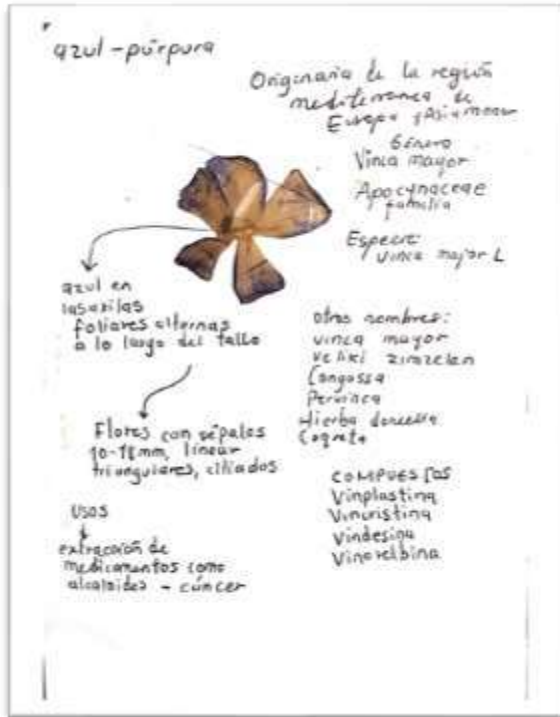 azul-púrpura
Originaria de la región
mediterranea de
Europa y Asia menor
Género
Vinca mayor
Apocynaceae
familia
Especie:
Vinca major L
azul en
las axilas
foliares alternas
a lo largo del tallo
Flores con sépalos
10-18mm, linear
triangulares, ciliados
Usos
extracción de
medicamentos como
alcaloides - cáncer
otros nombres:
vinca mayor
veliki zimzelen
Congossa
Pervinca
Hierba doncella
Coqueta
COMPUESTOS
Vinplastina
Vincristina
Vindesina
Vinorelbina